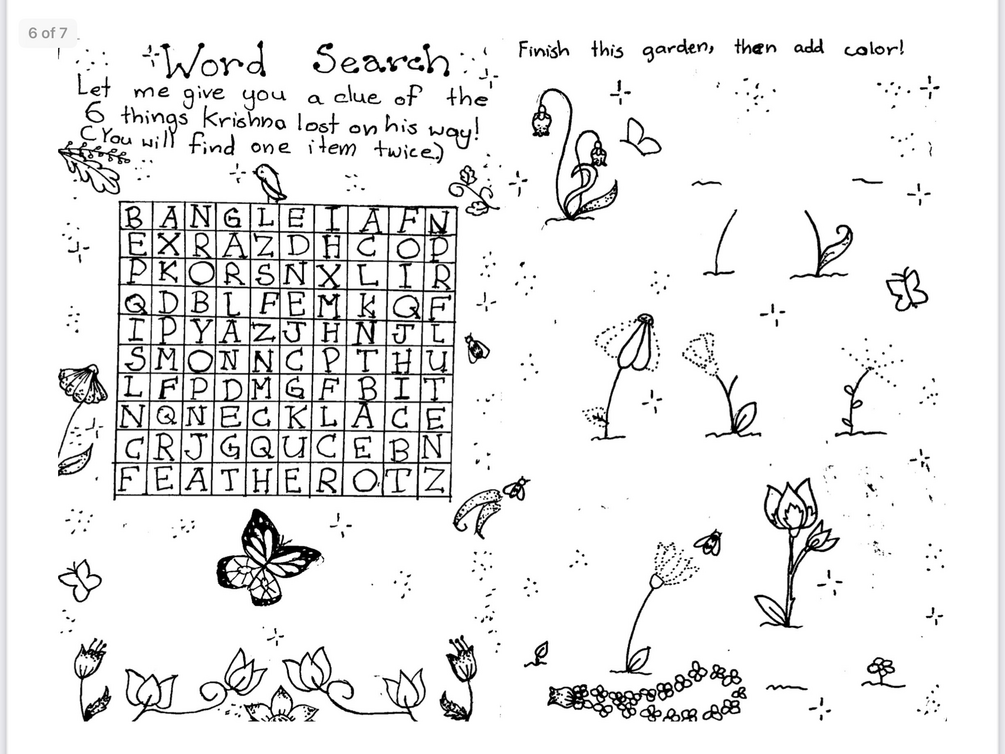 6 of 7
Word Search
Let me give you a clue of the
6 things Krishna lost on his way!
(You will find one item twice.)
B A N G L E I A F N
E X R A Z D H C O P
P K O R S N X L I R
Q D B L F E M K Q F
I P Y A Z J H N J L
S M O N N C P T H U
L F P D M G F B I T
N Q N E C K L A C E
C R J G Q U C E B N
F E A T H E R O T Z
Finish this garden, then add color!